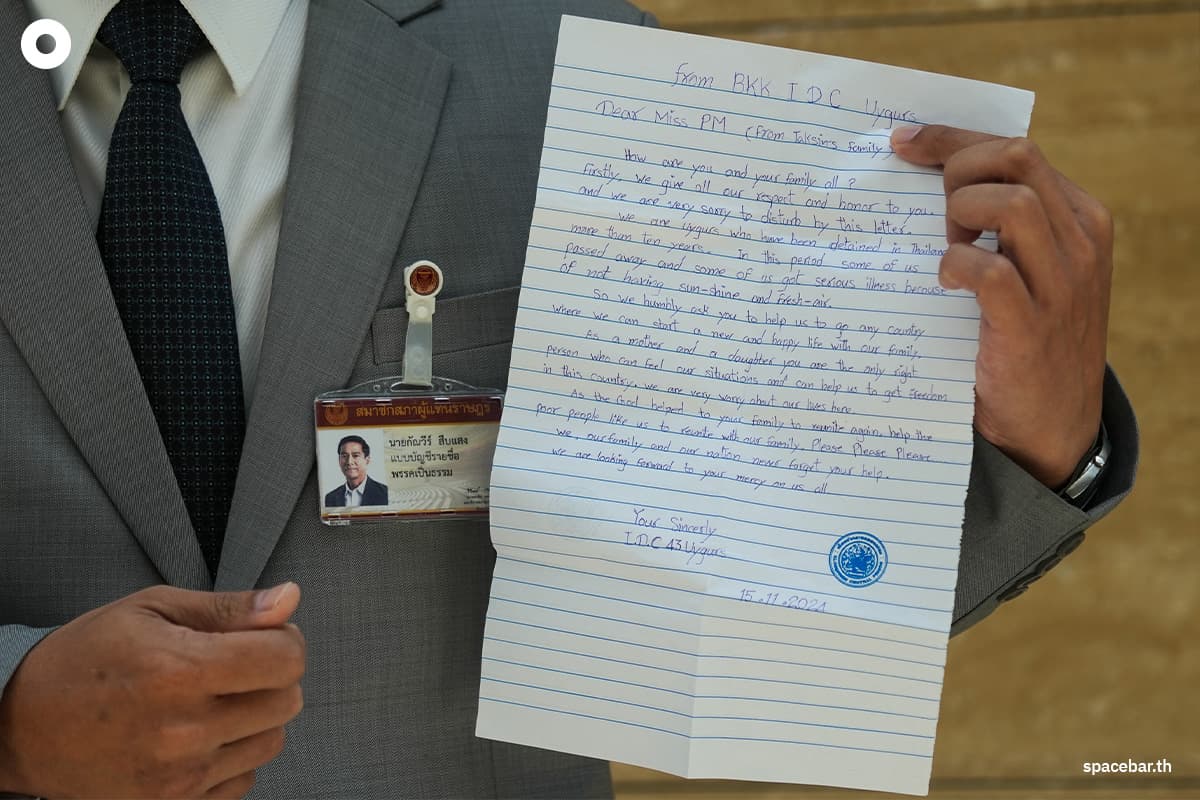 from BKK I D C Uygurs
Dear Miss PM (From Taksin's family)
How are you and your family all ?
Firstly, we give all our respect and honor to you.
and we are very sorry to disturb by this letter.
We are Uygurs who have been detained in Thailand
more than ten years. In this period some of us
passed away and some of us got serious illness because
of not having sun-shine and fresh-air.
So we humbly ask you to help us to go any country
where we can start a new and happy life with our family.
As a mother and a daughter you are the only right
person who can feel our situations and can help us to get freedom
in this country. we are very worry about our lives here.
As the God helped to your family to reunite again, help the
poor people like us to reunite with our family. Please Please Please
we, our family and our nation never forget your help.
we are looking forward to your mercy on us all.
Your Sincerly
I.D.C 43 Uygurs
15.11.2024
สมาชิกสภาผู้แทนราษฎร
นายกัณวีร์ สืบแสง
แบบบัญชีรายชื่อ
พรรคเป็นธรรม
spacebar.th